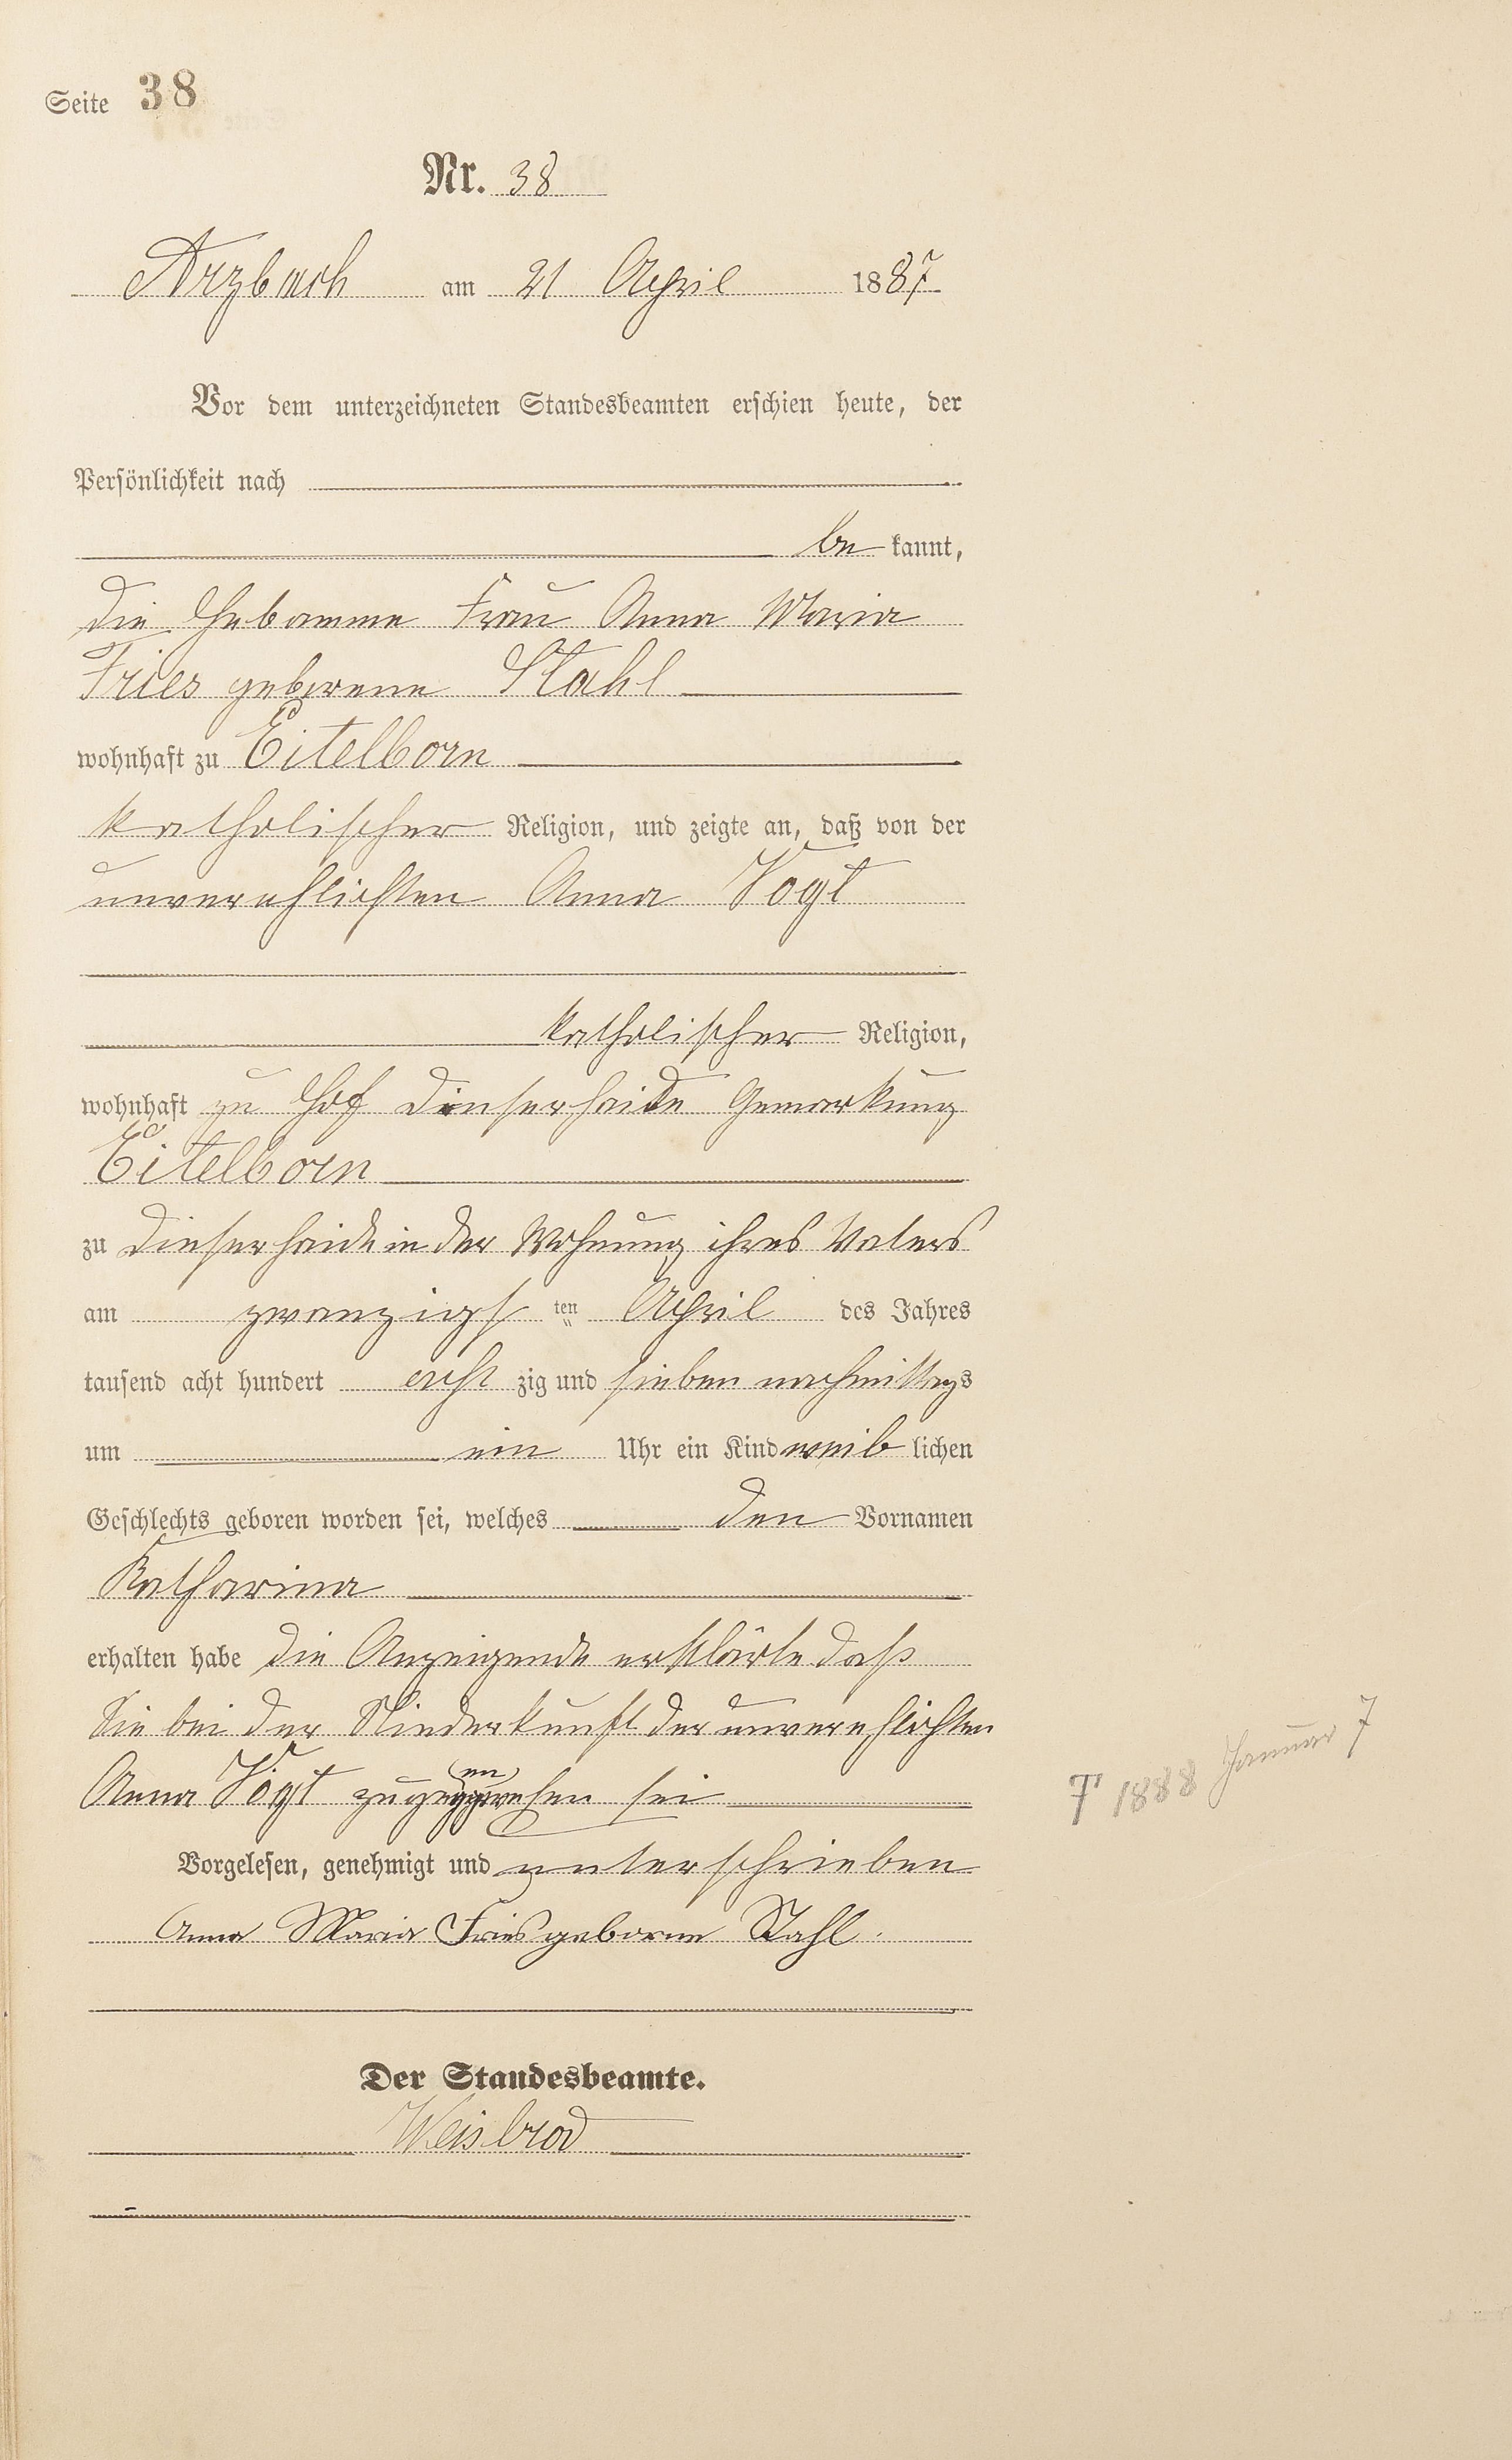 Seite 38
Nr. 38
Arzbach am 21 April 1887
Vor dem unterzeichneten Standesbeamten erschien heute, der
Persönlichkeit nach
be kannt,
die Hebamme Frau Anna Maria
Fries geborene Stahl
wohnhaft zu Eitelborn
katholischer Religion, und zeigte an, daß von der
unverehlichten Anna Vogt
katholischer Religion,
wohnhaft zu Hof Denserhaide Gemarkung
Eitelborn
zu Denserhaide in der Wohnung ihres Vaters
am zwanzigs ten April des Jahres
tausend acht hundert acht zig und sieben nachmittags
um ein Uhr ein Kind weib lichen
Geschlechts geboren worden sei, welches den Vornamen
Katharina
erhalten habe die Anzeigende erklärte daß
Sie bei der Niederkunft der unverehlichten
Anna Vogt zugegen gewesen sei
Vorgelesen, genehmigt und unterschrieben
Anna Maria Fries geborene Stahl.
Der Standesbeamte.
Weisbrod
† 1888 Januar 7